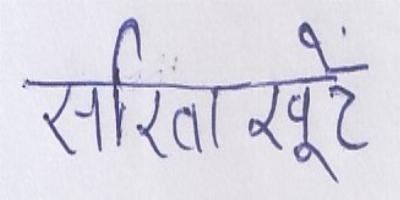 सरिता खूटें